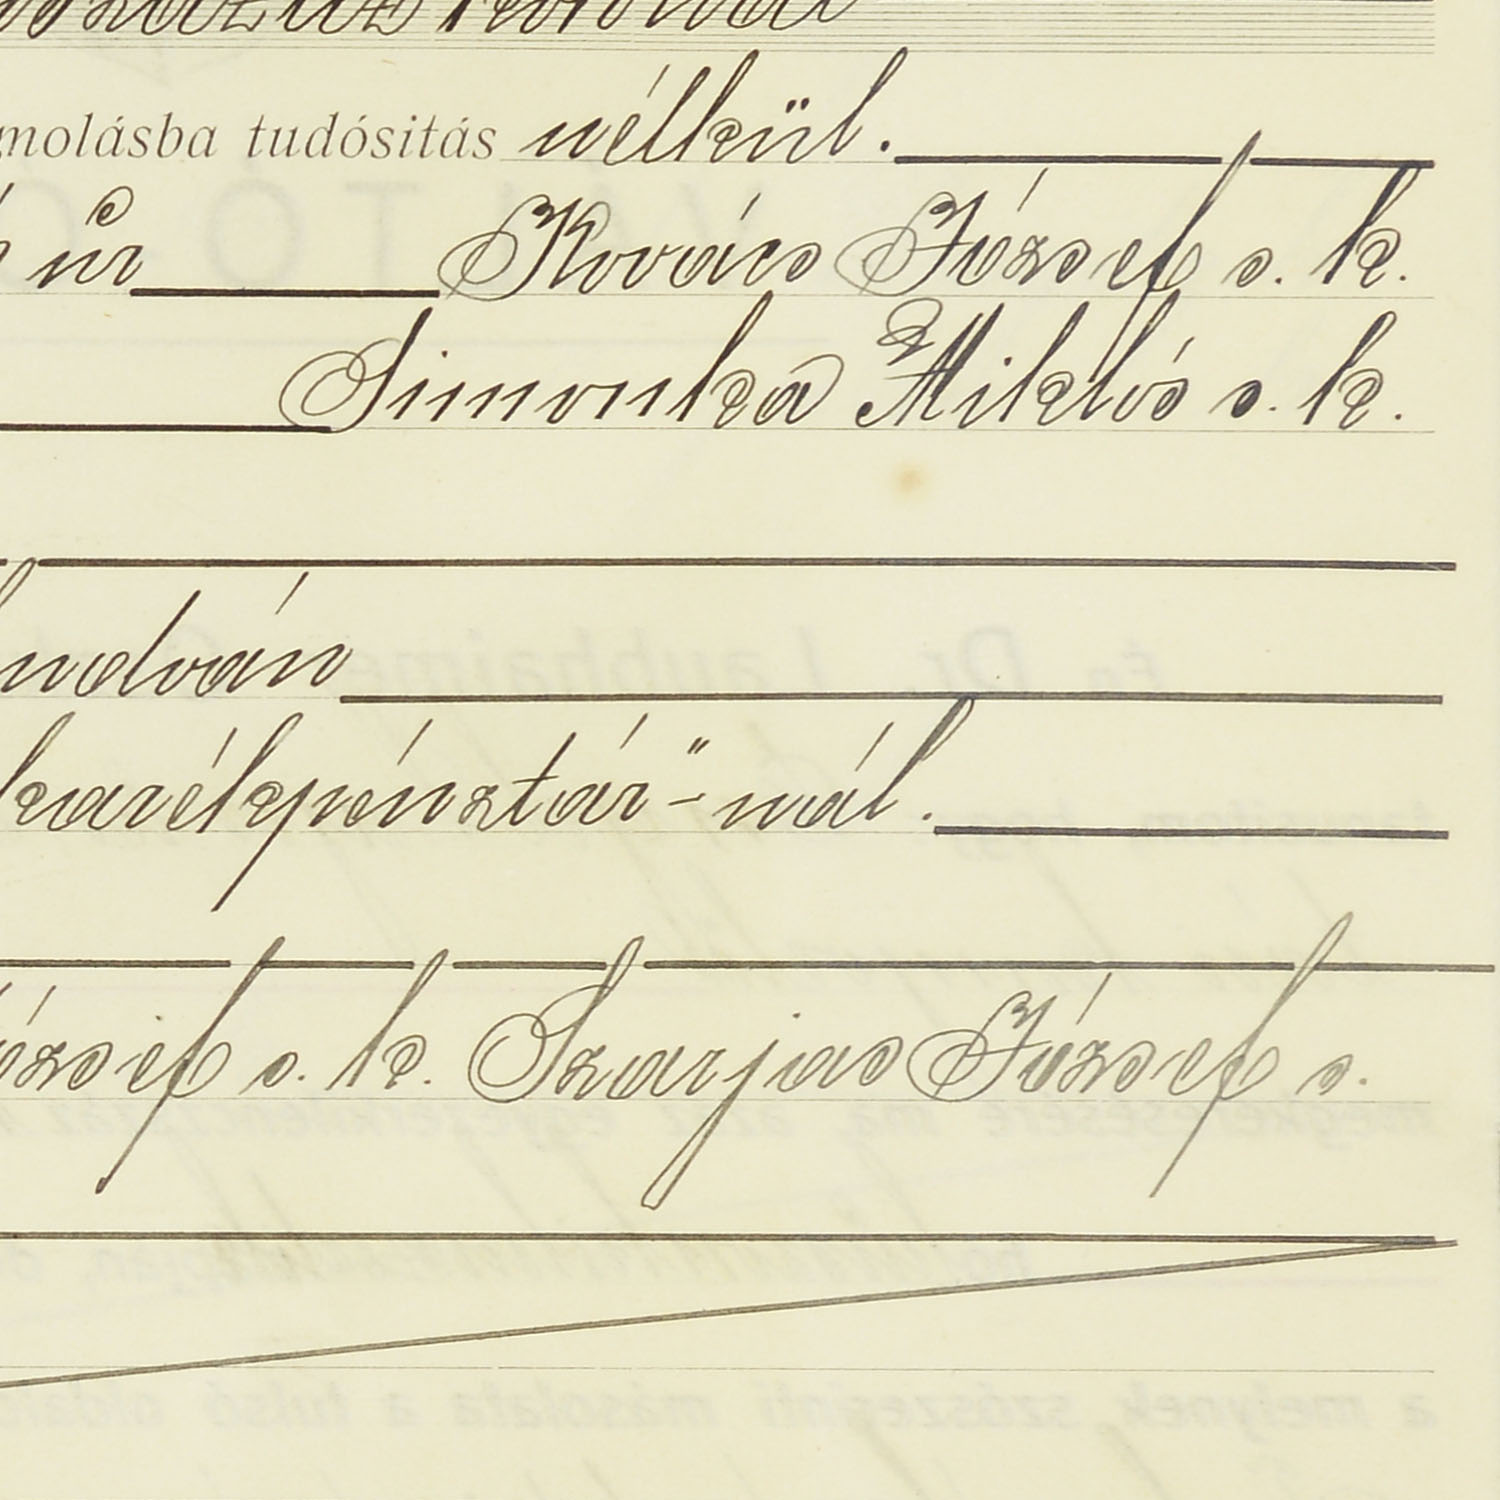 molásba tudósitás nélkül.
úr Kovács József s. k.
Simonka Miklós s. k.
ludván
karékpénztár"-nál.
József s. k. Szarjas József s.